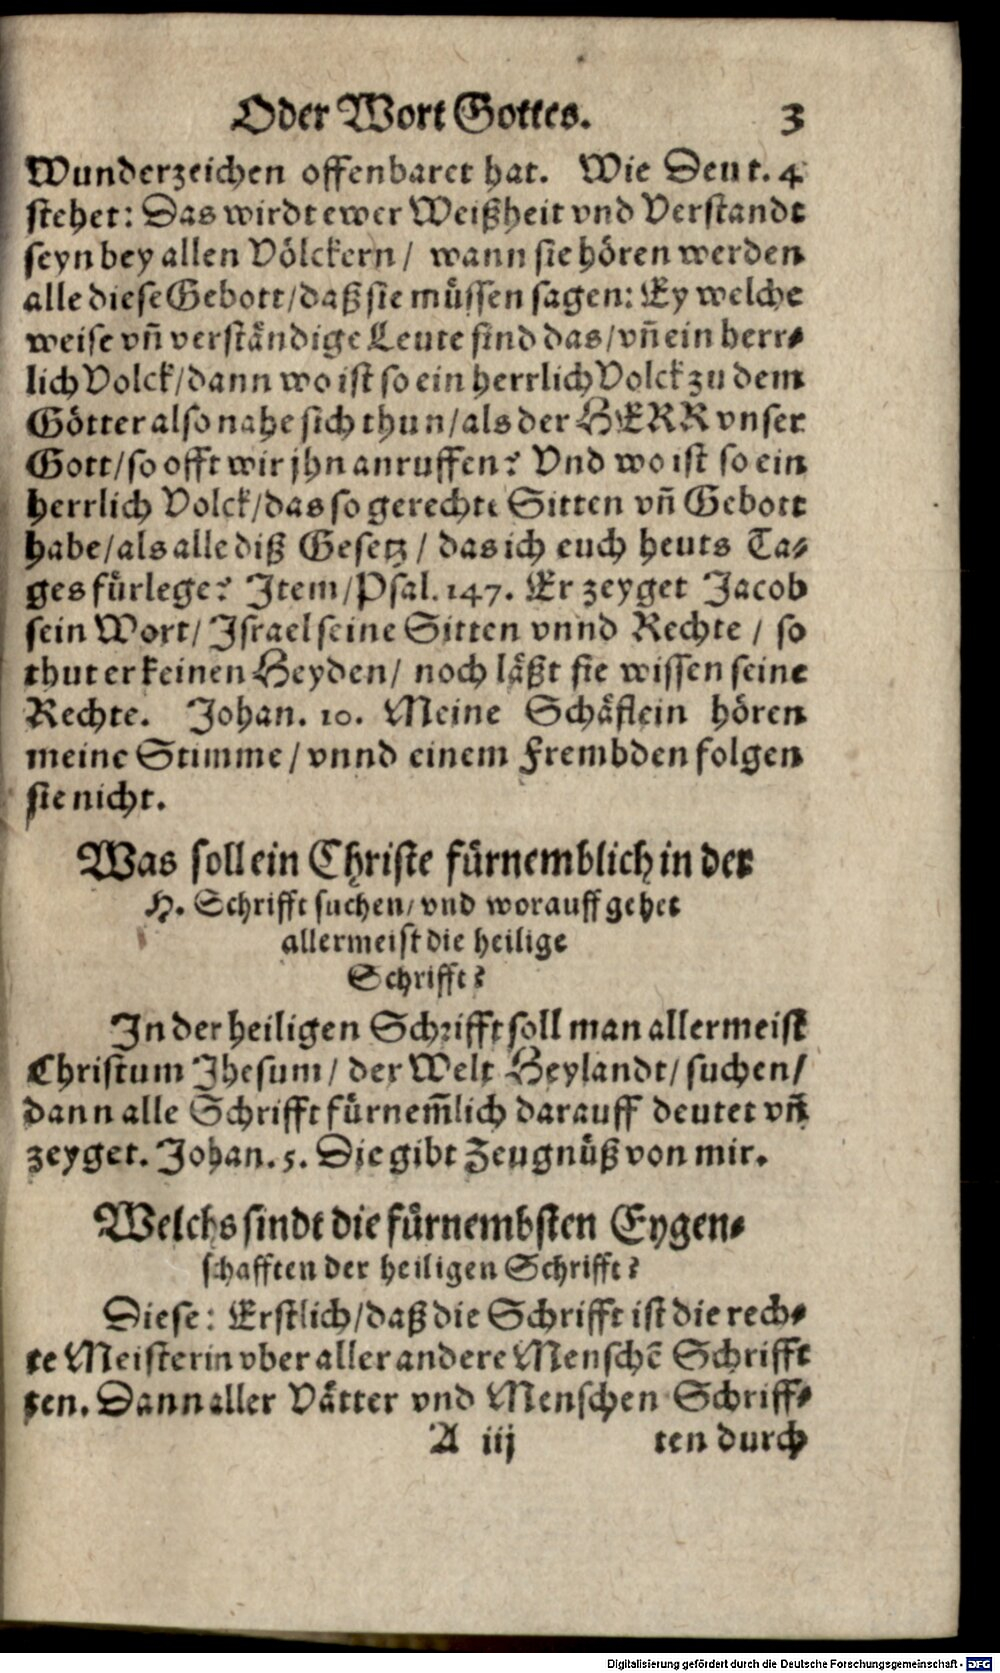 Oder Wort Gottes. 3
Wunderzeichen offenbaret hat. Wie Deut. 4
stehet: Das wirdt ewer Weißheit vnd Verstandt
seyn bey allen Völckern / wann sie hören werden
alle diese Gebott / daß sie müssen sagen: Ey welche
weise vñ verständige Leute sind das / vñ ein herr-
lich Volck / dann wo ist so ein herrlich Volck zu dem
Götter also nahe sich thun / als der HERR vnser
Gott / so offt wir jhn anruffen? Vnd wo ist so ein
herrlich Volck / das so gerechte Sitten vñ Gebott
habe / als alle diß Gesetz / das ich euch heuts Ta-
ges fürlege? Item / Psal. 147. Er zeyget Jacob
sein Wort / Israel seine Sitten vnnd Rechte / so
thut er keinen Heyden / noch läßt sie wissen seine
Rechte. Johan. 10. Meine Schäflein hören
meine Stimme / vnnd einem Frembden folgen
sie nicht.
Was soll ein Christe fürnemblich in der
H. Schrifft suchen / vnd worauff gehet
allermeist die heilige
Schrifft?
In der heiligen Schrifft soll man allermeist
Christum Jhesum / der Welt Heylandt / suchen /
dann alle Schrifft fürnem̃lich darauff deutet vñ
zeyget. Johan. 5. Die gibt Zeugnüß von mir.
Welchs sindt die fürnembsten Eygen-
schafften der heiligen Schrifft?
Diese: Erstlich / daß die Schrifft ist die rech-
te Meisterin vber aller andere Menschẽ Schrifft
ten. Dann aller Vätter vnd Menschen Schriff-
A iij ten durch
Digitalisierung gefördert durch die Deutsche Forschungsgemeinschaft - DFG